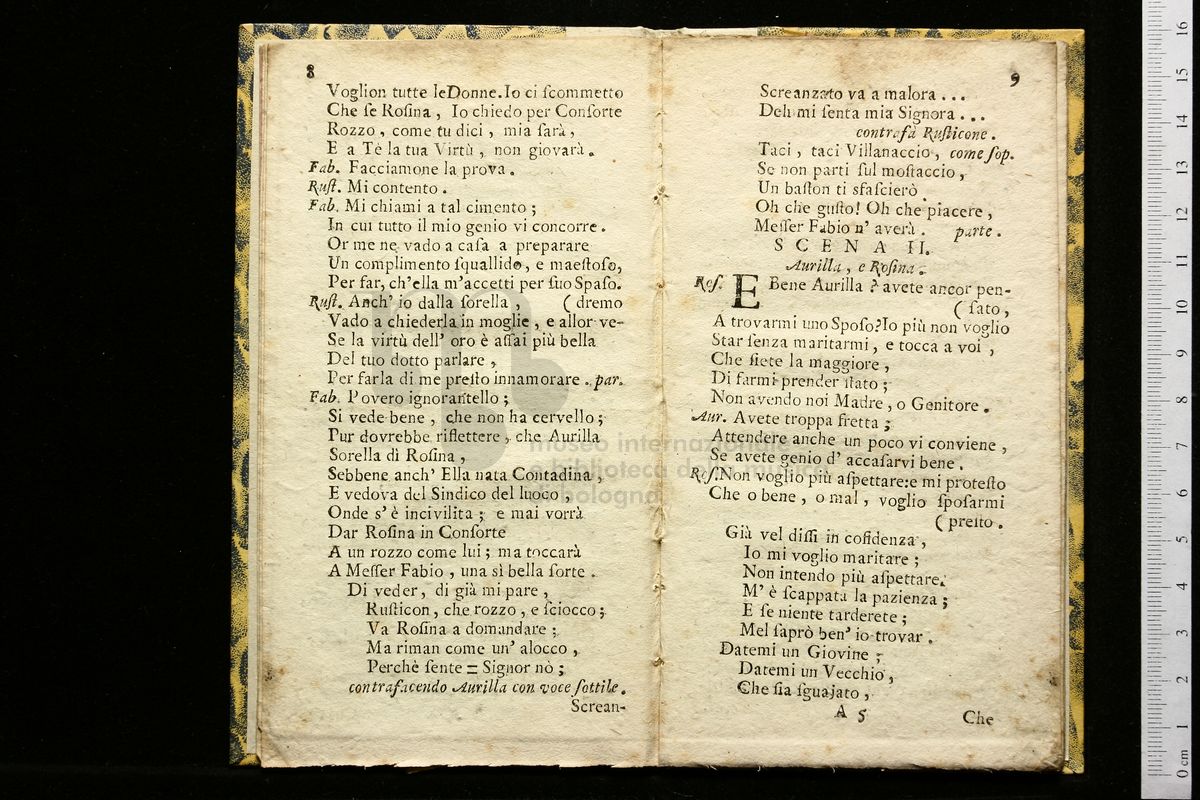 8
Voglion tutte le Donne. Io ci ſcommetto
Che ſe Roſina, Io chiedo per Conſorte
Rozzo, come tu dici, mia ſarà,
E a Tè la tua Virtù, non giovarà.
Fab. Facciamone la prova.
Ruſt. Mi contento.
Fab. Mi chiami a tal cimento;
In cui tutto il mio genio vi concorre.
Or me ne vado a caſa a preparare
Un complimento ſquallido, e maeſtoſo,
Per far, ch'ella m'accetti per ſuo Spaſo.
Ruſt. Anch' io dalla ſorella, ( dremo
Vado a chiederla in moglie, e allor ve-
Se la virtù dell' oro è aſſai più bella
Del tuo dotto parlare,
Per farla di me preſto innamorare. par.
Fab. Povero ignorantello;
Si vede bene, che non ha cervello;
Pur dovrebbe riflettere, che Aurilla
Sorella di Roſina,
Sebbene anch' Ella nata Contadina,
E vedova del Sindico del luoco,
Onde s' è incivilita; e mai vorrà
Dar Roſina in Conſorte
A un rozzo come lui; ma toccarà
A Meſſer Fabio, una sì bella ſorte.
Di veder, di già mi pare,
Ruſticon, che rozzo, e ſciocco;
Va Roſina a domandare;
Ma riman come un' alocco,
Perchè ſente = Signor nò;
contrafacendo Aurilla con voce ſottile.
Screan-
9
Screanzato va a malora...
Deh mi ſenta mia Signora...
contrafà Ruſticone.
Taci, taci Villanaccio, come ſop.
Se non parti ſul moſtaccio,
Un baſton ti sfaſcierò.
Oh che guſto! Oh che piacere,
Meſſer Fabio n' averà. parte.
SCENA II.
Aurilla, e Roſina.
Roſ. E Bene Aurilla? avete ancor pen-
( ſato,
A trovarmi uno Spoſo? Io più non voglio
Star ſenza maritarmi, e tocca a voi,
Che ſiete la maggiore,
Di farmi prender ſtato;
Non avendo noi Madre, o Genitore.
Aur. Avete troppa fretta;
Attendere anche un poco vi conviene,
Se avete genio d' accaſarvi bene.
Roſ. Non voglio più aſpettare: e mi proteſto
Che o bene, o mal, voglio ſpoſarmi
( preſto.
Già vel diſſi in cofidenza,
Io mi voglio maritare;
Non intendo più aſpettare.
M' è ſcappata la pazienza;
E ſe niente tarderete;
Mel ſaprò ben' io trovar.
Datemi un Giovine;
Datemi un Vecchio,
Che ſia ſguajato,
A 5
Che
museo internazionale
e biblioteca della musica
di bologna
0 cm 1 2 3 4 5 6 7 8 9 10 11 12 13 14 15 16